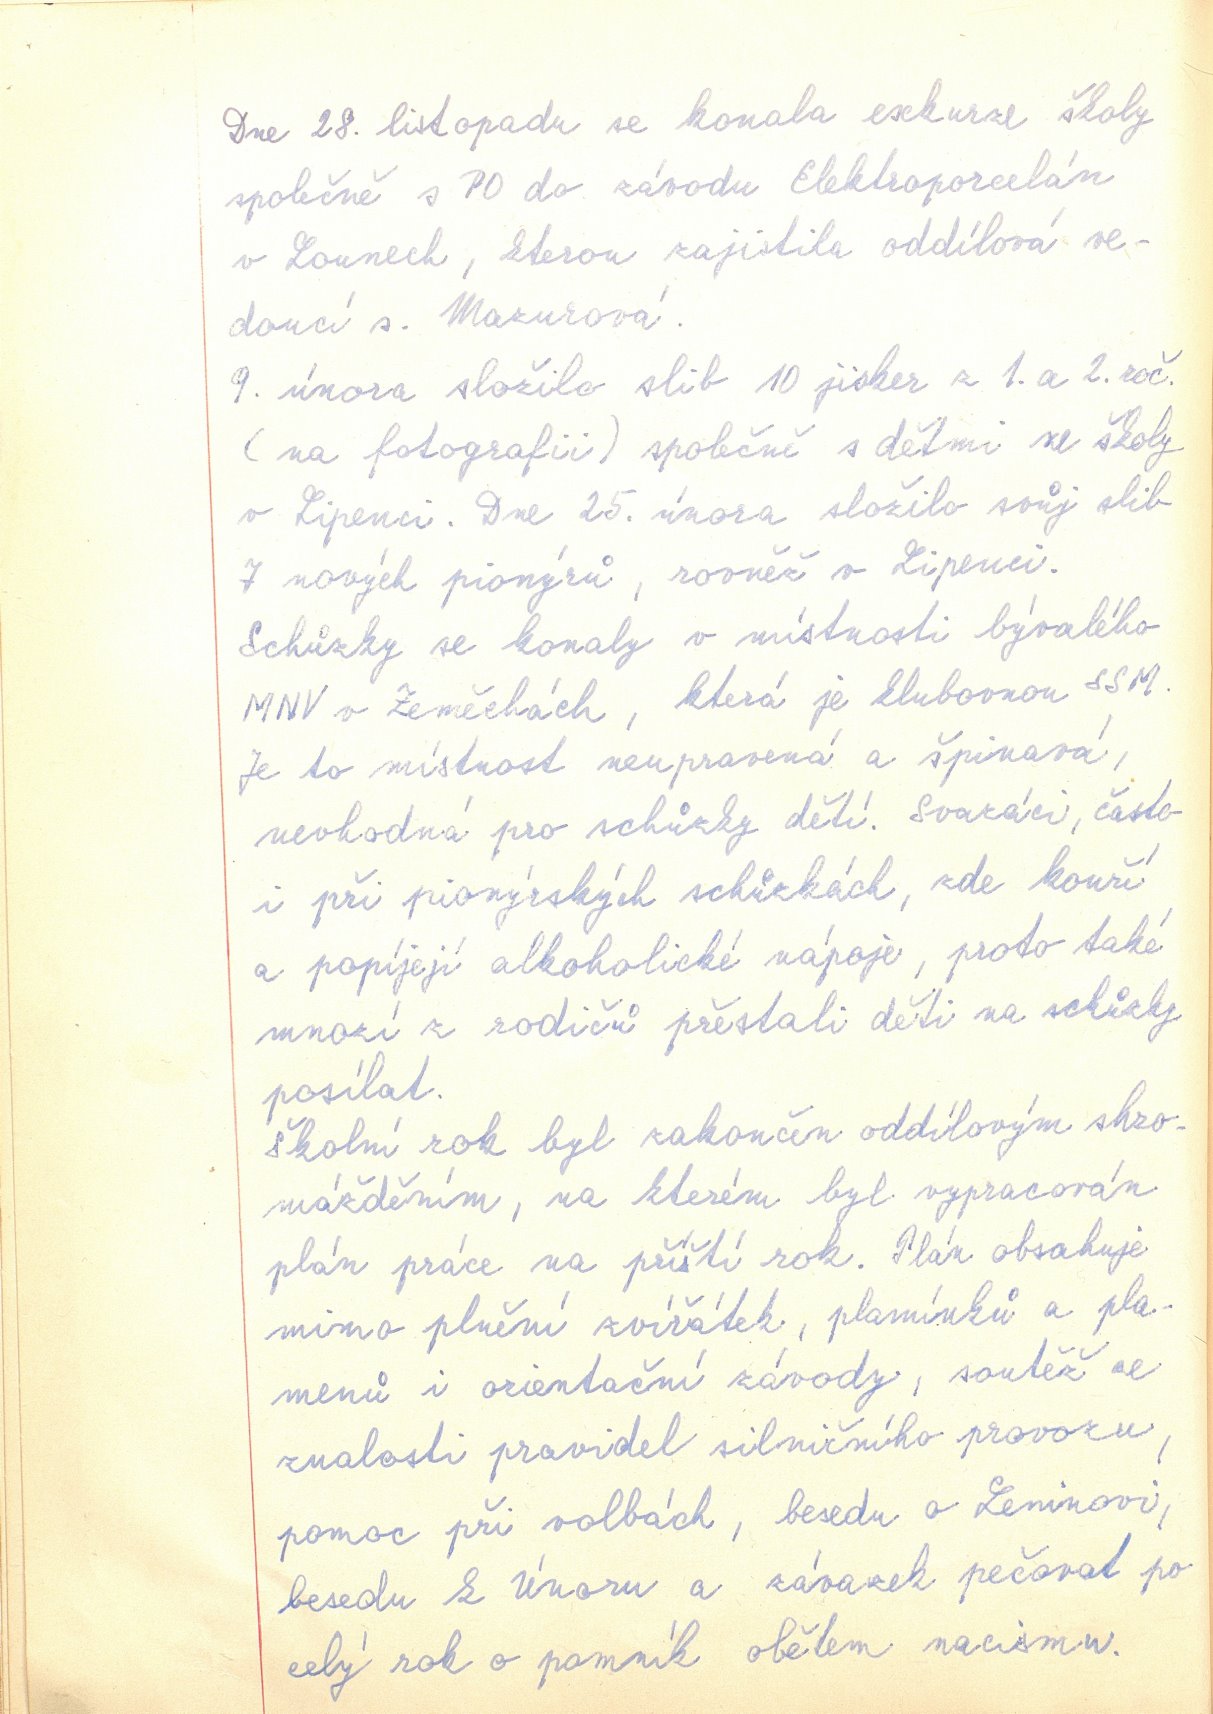 Dne 28. listopadu se konala exkurze školy
společně s PO do závodu Elektroporcelán
v Lounech, kterou zajistila oddílová ve-
doucí s. Mazurová.
9. února složilo slib 10 jisker z 1. a 2. roč.
(na fotografii) společně s dětmi ze školy
v Lipenci. Dne 25. února složilo svůj slib
7 nových pionýrů, rovněž v Lipenci.
Schůzky se konaly v místnosti bývalého
MNV v Zeměchách, která je klubovnou SSM.
Je to místnost neupravená a špinavá,
nevhodná pro schůzky dětí. Svazáci, často
i při pionýrských schůzkách, zde kouří
a popíjejí alkoholické nápoje, proto také
mnozí z rodičů přestali děti na schůzky
posílat.
Školní rok byl zakončen oddílovým shro-
mážděním, na kterém byl vypracován
plán práce na příští rok. Plán obsahuje
mimo plnění zvířátek, plamínků a pla-
menů i orientační závody, soutěž ve
znalosti pravidel silničního provozu,
pomoc při volbách, besedu o Leninovi,
besedu k Únoru a závazek pečovat po
celý rok o pomník obětem nacismu.